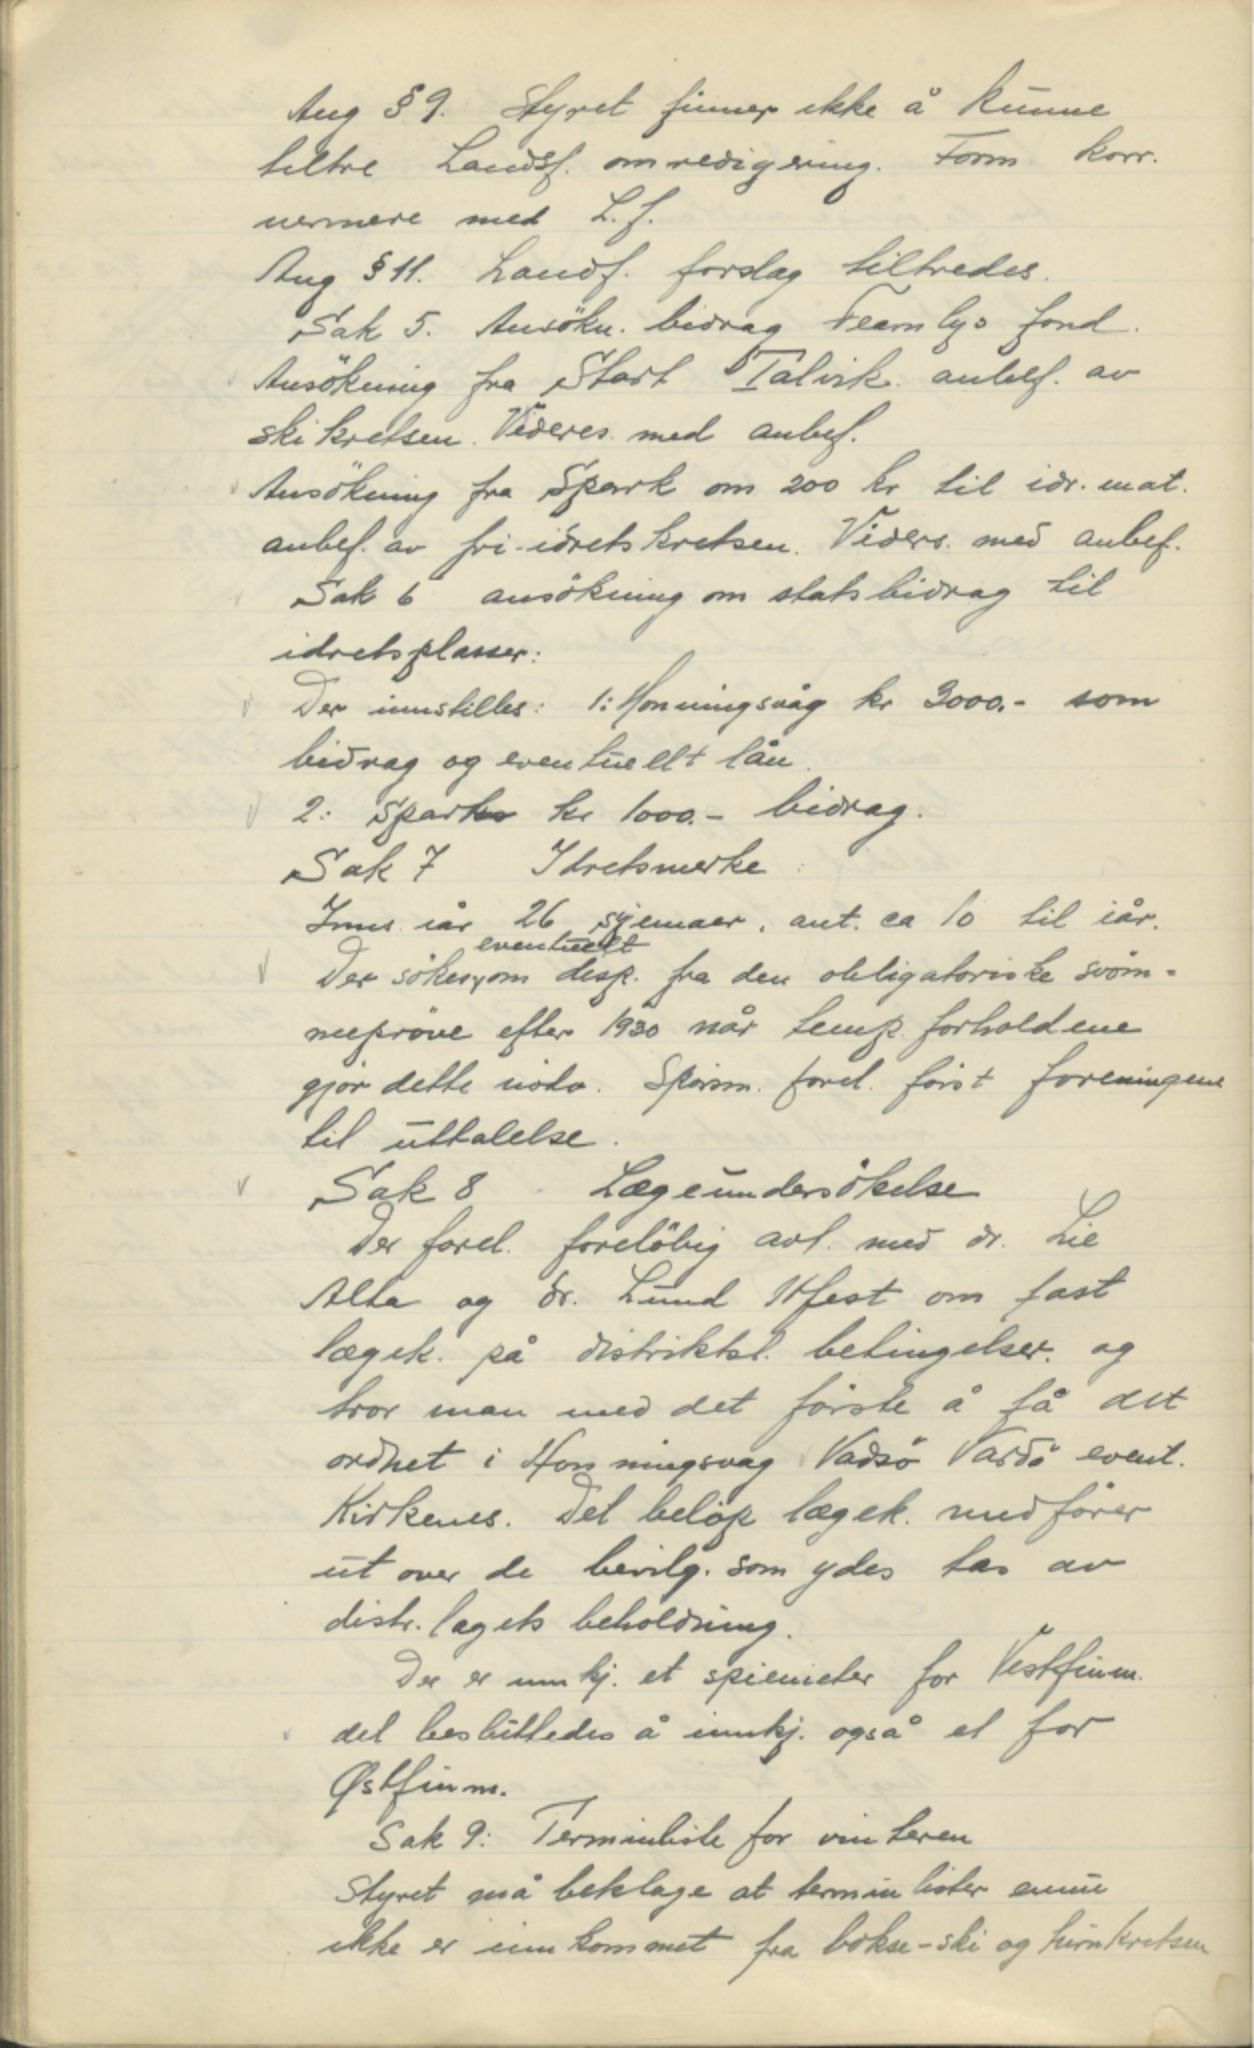 Ang § 9. Styret finner ikke å kunne
tiltre Landsf. omredigering. Form. korr.
nermere med L.f.
Ang § 11. Landsf. forslag tiltredes.
Sak 5. Ansökn. bidrag Fearnleys fond.
Ansökning fra Start Talvik anbef. av
skikretsen. Videres med anbef.
Ansökning fra Spark om 200 kr til idr. mat.
anbef. av fri-idretskretsen. Viders. med anbef.
Sak 6 ansökning om statsbidrag til
idretsplasser:
Der innstilles: 1: Honningsvåg kr 3000.- som
bidrag og eventuellt lån.
2: Spark kr 1000.- bidrag.
Sak 7 Idretsmerke
Inns. iår 26 skjemaer, ant. ca 10 til iår.
eventuelt
Der sökes om disp. fra den obligatoriske svöm-
mepröve efter 1930 når temp. forholdene
gjör dette nödv. Spörsm. forel. först foreningene
til uttalelse.
Sak 8 Lægeundersökelse
Der forel. forelöbig avt. med dr. Lie
Alta og dr. Lund Hfest om fast
lægek. på distriktsl. betingelser. og
tror man med det förste å få det
ordnet i Honningsvag Vadsö Vardö event.
Kirkenes. Det belöp lægek. medförer
ut over de bevilg. som ydes tas av
distr. lagets beholdning.
Der er innkj. et spiemeter for Vestfinnm.
det besluttedes å innkj. også et for
Østfinnm.
Sak 9: Terminliste for vinteren
Styret må beklage at terminlister ennu
ikke er innkommet fra bokse-ski og turnkretsen